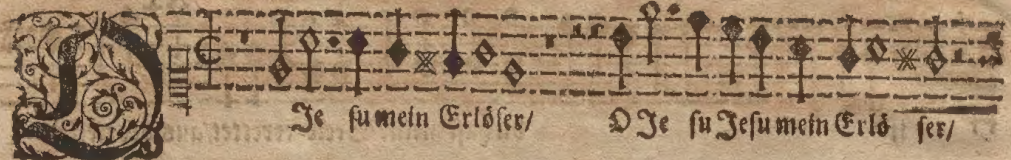 O Je su mein Erlöser/ O Je su Jesu mein Erlö ser/